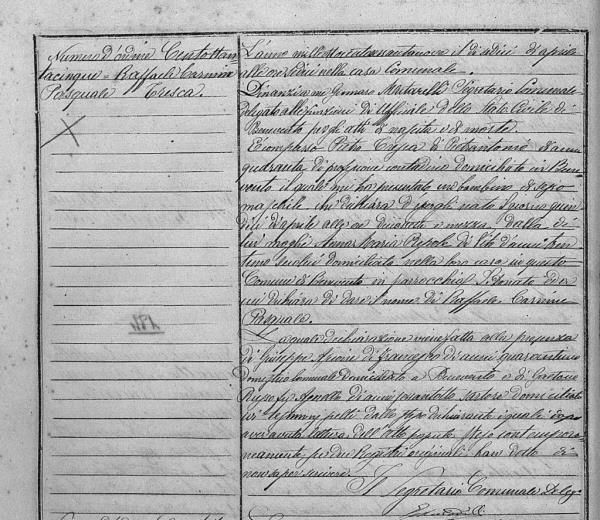 Numero d'ordine Centottan
tacinque = Raffaele Carmine
Pasquale Tresca.
L'anno milleottocentosessantanove il dì sedici d'aprile
alle ore sedici nella casa Comunale.
Dinanzi a me Gennaro Martarelli Segretario Comunale
delegato alle funzioni di Uffiziale dello Stato Civile di
Benevento per gli atti di nascita e di morte.
È comparso Pietro Tresca di Pietrantonio di anni
quaranta, di professione contadino domiciliato in Bene
vento il quale mi ha presentato un bambino di sesso
maschile, che dichiara di essergli nato il giorno quin
dici d'aprile alle ore e mezza dalla di
lui moglie Anna Maria di Vito d'anni tren
tuno domiciliata nella loro casa in questo
Comune di Benevento in parrocchia S. Donato di
cui dichiara di dare il nome di Raffaele Carmine
Pasquale.
La quale dichiarazione viene fatta alla presenza
di Giuseppe di Francesco di anni quarantuno
Comunale domiciliato a Benevento e di Gaetano
di anni quarantotto sartore domiciliato
ivi Testimoni scelti dallo stesso dichiarante i quali dopo
aver avuta lettura dell'atto presente steso contempora
neamente su due Registri originali han detto di
non saper scrivere.
Il Segretario Comunale Deleg.